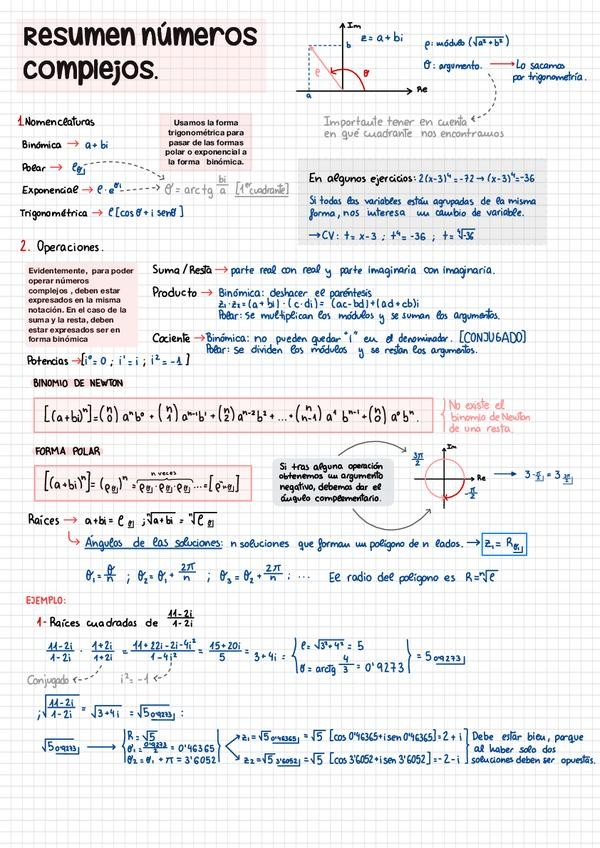 Resumen números
complejos.
Im
Re
z = a + bi
b
a
ρ
θ
ρ: módulo (√a²+b²)
θ: argumento. → Lo sacamos
por trigonometría.
Importante tener en cuenta
en qué cuadrante nos encontramos
1. Nomenclaturas
Binómica → a + bi
Polar → ρθ
Exponencial → ρ · e^θi
θ = arctg bi/a [1er cuadrante]
Trigonométrica → ρ [cos θ + i sen θ]
Usamos la forma
trigonométrica para
pasar de las formas
polar o exponencial a
la forma binómica.
En algunos ejercicios: 2(x-3)⁴ = -72 → (x-3)⁴ = -36
Si todas las variables están agrupadas de la misma
forma, nos interesa un cambio de variable.
→ CV: t = x-3 ; t⁴ = -36 ; t = ⁴√-36
2. Operaciones.
Evidentemente, para poder
operar números
complejos , deben estar
expresados en la misma
notación. En el caso de la
suma y la resta, deben
estar expresados ser en
forma binómica
Suma / Resta → parte real con real y parte imaginaria con imaginaria.
Producto → Binómica: deshacer el paréntesis
z₁·z₂ = (a+bi)·(c·di) = (ac-bd)+(ad+cb)i
Polar: se multiplican los módulos y se suman los argumentos.
Cociente → Binómica: no pueden quedar "i" en el denominador. [CONJUGADO]
Polar: Se dividen los módulos y se restan los argumentos.
Potencias → [i⁰ = 0 ; i¹ = i ; i² = -1 ]
BINOMIO DE NEWTON
[(a+bi)ⁿ] = (n 0) aⁿb⁰ + (n 1) aⁿ⁻¹b¹ + (n 2) aⁿ⁻²b² + ... + (n n-1) a¹ bⁿ⁻¹ + (n 0) a⁰bⁿ.
No existe el
binomio de Newton
de una resta
FORMA POLAR
[(a+bi)ⁿ] = (ρθ)ⁿ = ρθ · ρθ · ρθ ... = [ρⁿ n·θ]
n veces
Si tras alguna operación
obtenemos un argumento
negativo, debemos dar el
ángulo complementario.
3π/2
Im
Re
-π/2
→ 3 -π/2 = 3 3π/2
Raíces → a+bi = ρθ ; ⁿ√a+bi = ⁿ√ρθ
Ángulos de las soluciones: n soluciones que forman un polígono de n lados. → z₁ = Rθ₁
θ₁ = θ/n ; θ₂ = θ₁ + 2π/n ; θ₃ = θ₂ + 2π/n ; ... El radio del polígono es R = ⁿ√ρ
EJEMPLO:
1- Raíces cuadradas de 11-2i/1-2i
11-2i/1-2i · 1+2i/1+2i = 11+22i-2i-4i²/1-4i² = 15+20i/5 = 3+4i =
ρ = √3²+4² = 5
θ = arctg 4/3 = 0'9273
= 5 0'9273
Conjugado
i² = -1
√11-2i/1-2i = √3+4i = √5 0'9273 :
√5 0'9273 →
R = √5
θ₁ = 0'9273/2 = 0'46365
θ₂ = θ₁ + π = 3'6052
z₁ = √5 0'46365 = √5 [cos 0'46365 + i sen 0'46365] = 2 + i
z₂ = √5 3'6052 = √5 [cos 3'6052 + i sen 3'6052] = -2 - i
Debe estar bien, porque
al haber solo dos
soluciones deben ser opuestas.